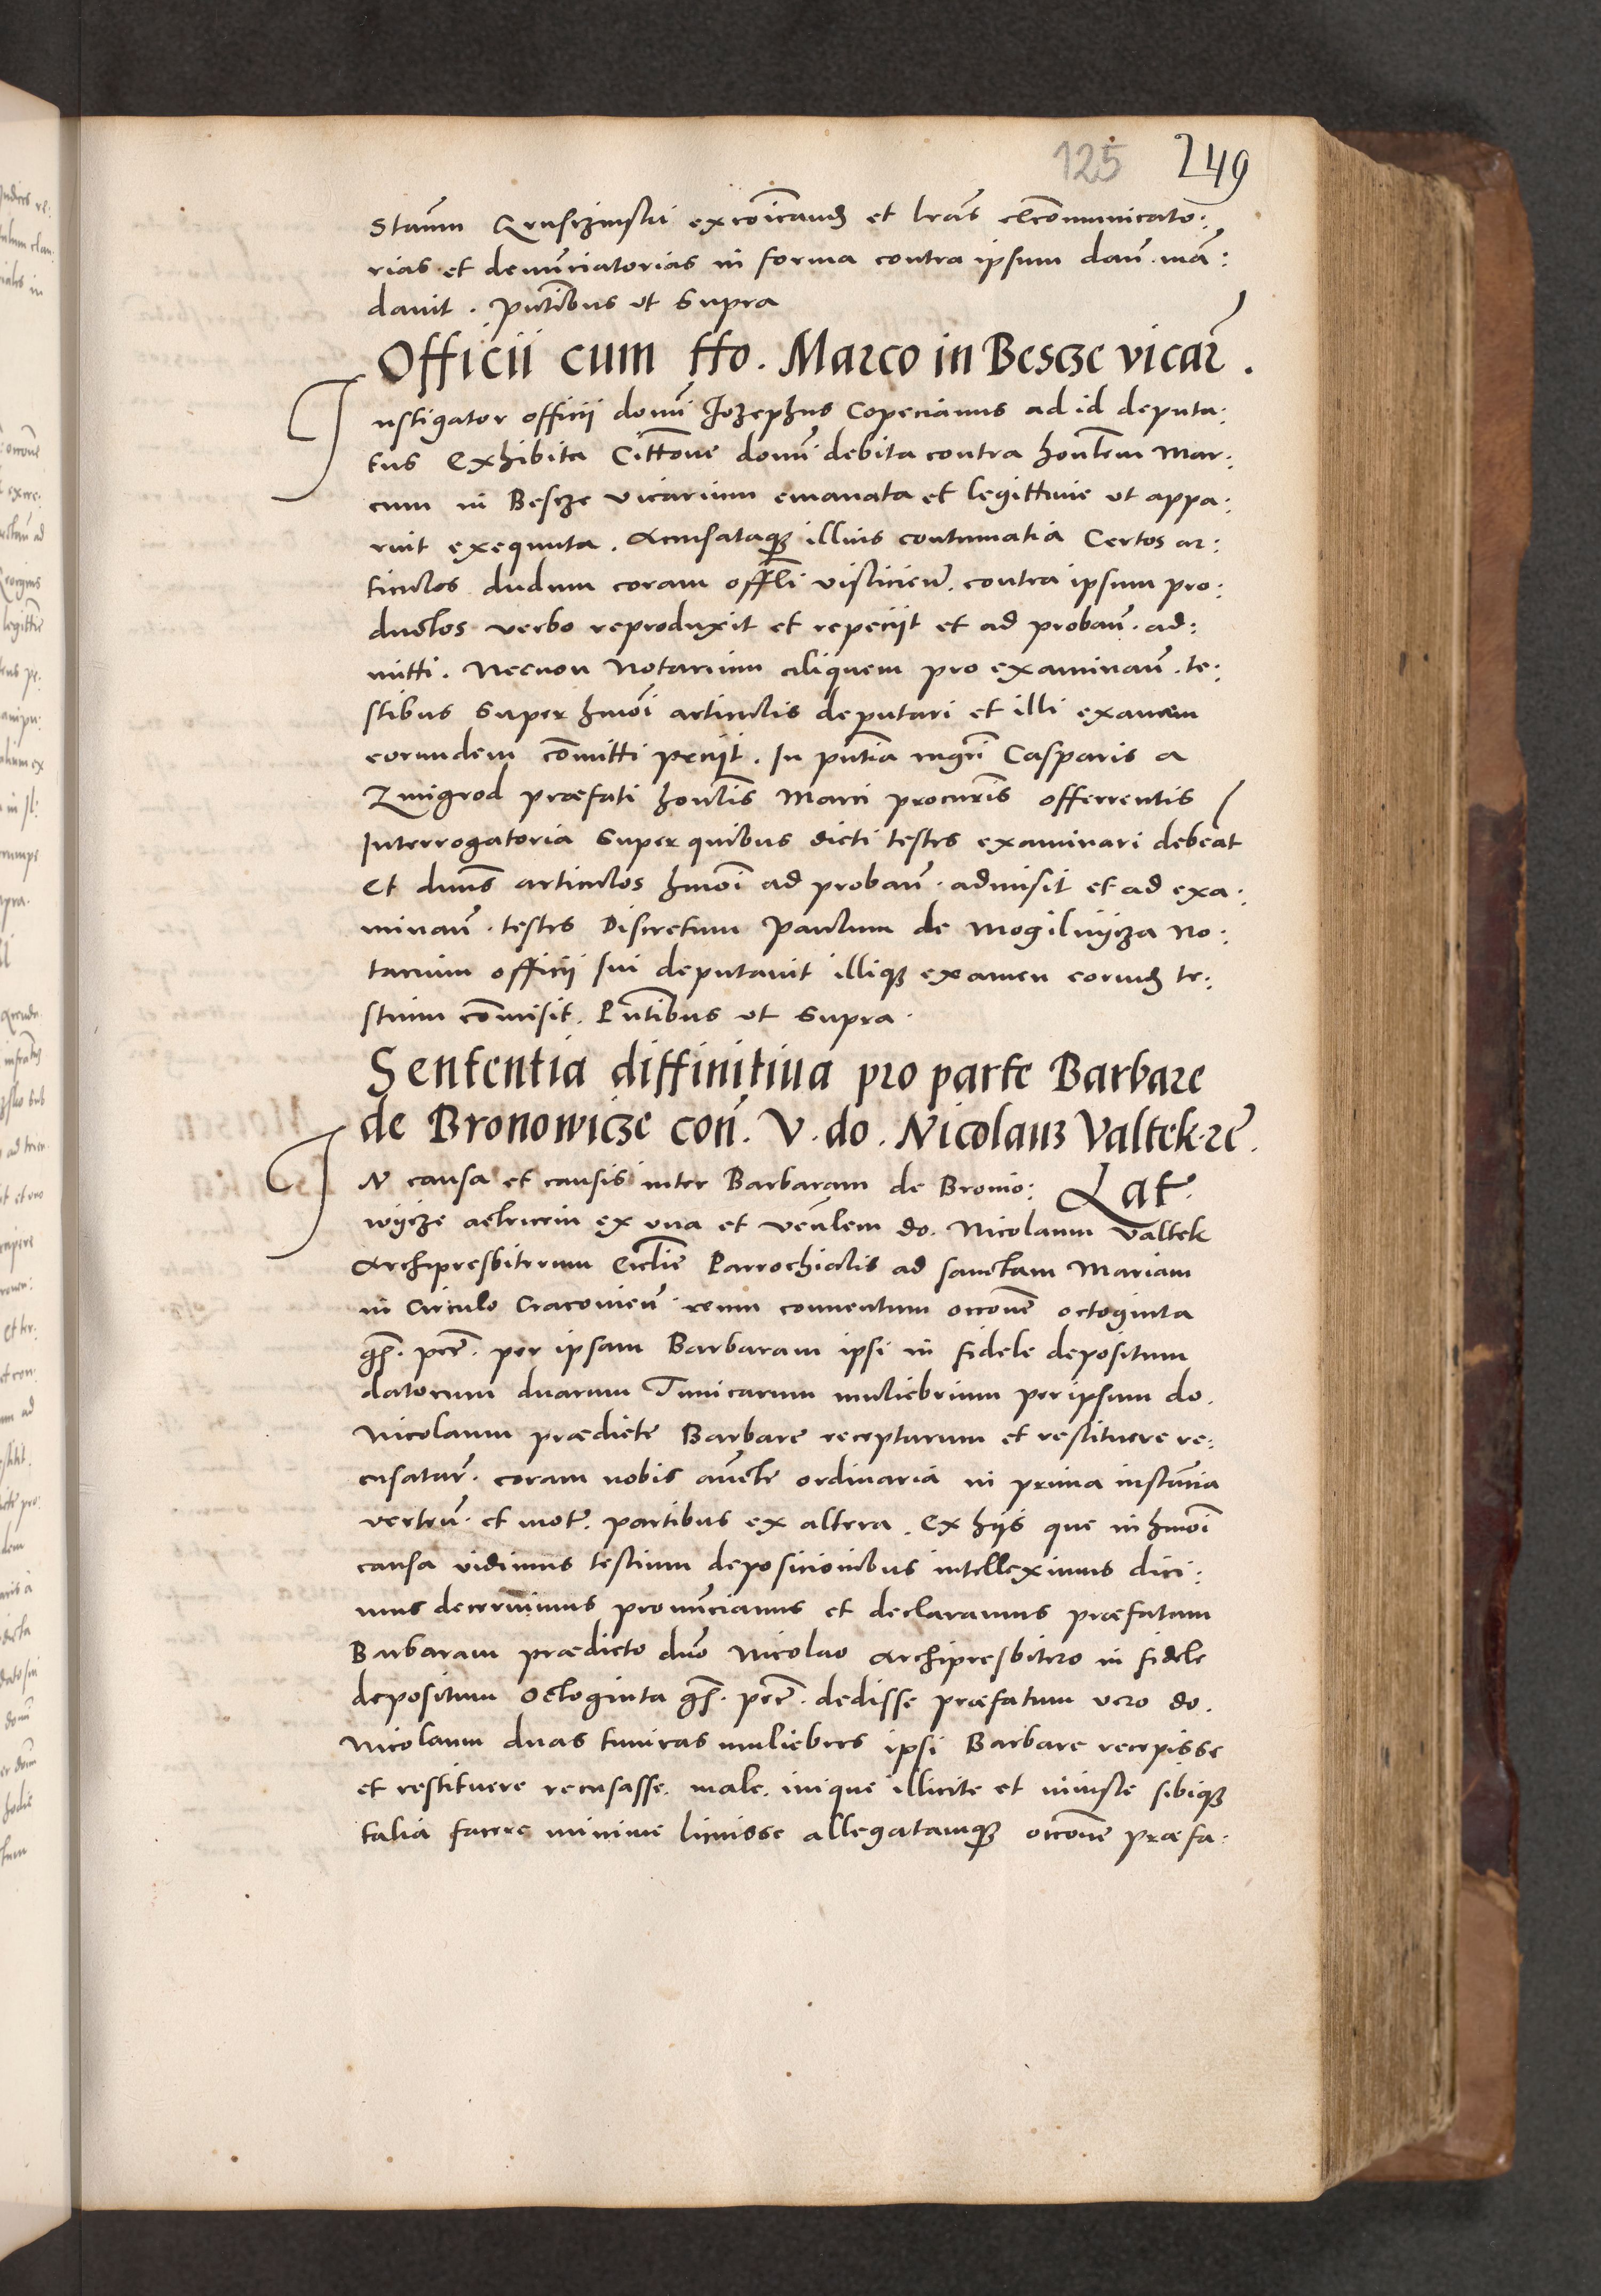 125 249
Staum Cruschinskii excoicand et lras excommunicato:
rias et denunciatorias in forma contra ipsum daū. mā:
davit. pntibus ut Supra
Officii cum Ho. Marco in Bescze vicar̄.
Instigator officii domī Jozephus Copecianus ad id deputa:
tus Exhibita Cittone domī debita contra honlem Mar:
cum in Bescze vicarium emanata et legittime ut appa:
ruit exequuta. Acusataq illius contumatia Certos ar:
ticulos dudum coram offli visliciēn. contra ipsum pro:
ductos verbo reproduxit et repeciit et ad probaū. ad:
mitti. Necnon Notarium aliquem pro examinaū. te:
stibus Super hmōi articulis deputari et illi examen
eorundem cōmitti peciit. In pntia mgri Casparis a
Zmigrod præfati honlis Marci procuris offerrentis
Interrogatoria Super quibus dicti testes examinari debeāt
Et dnus articulos hmōi ad probaū. admisit et ad exa:
minaū. testes Discretum Paulum de Mogilnycza No:
tarium officii sui deputavit illiq examen eorund te:
stium cōmisit. Pntibus ut Supra.
Sententia diffinitiua pro parte Barbare
de Bronowicze con̄. V. do. Nicolaus Valtek. re.
IN causa et causis inter Barbaram de Brono: Lat.
wycze actricem ex una et venlem do. Nicolaum Valtek
Archipresbiterum Ecclie Parrochialis ad sanctam Mariam
in Circulo Cracovieū. reum conventum occone octoginta
gs. pec. per ipsam Barbaram ipsi in fidele depositum
datorum duarum Tunicarum muliebrium per ipsum do.
Nicolaum prædicte Barbare receptarum et restituere re:
cusatar̄. coram nobis aucte ordinaria in prima instantia
verteū. et mot. partibus ex altera. Ex hiis que in hmōi
causa vidimus testium deposicionibus intelleximus dici:
mus decernimus pronunciamus et declaramus præfatam
Barbaram prædicto dno Nicolao Archipresbitero in fidele
depositum Octoginta gs. pec. dedisse præfatum vero do.
Nicolaum duas tunicas muliebres ipsi Barbare recepisse
et restituere recusasse. male. inique illicite et iniuste sibiq
talia facere minime licuisse allegatamq occone præfa: